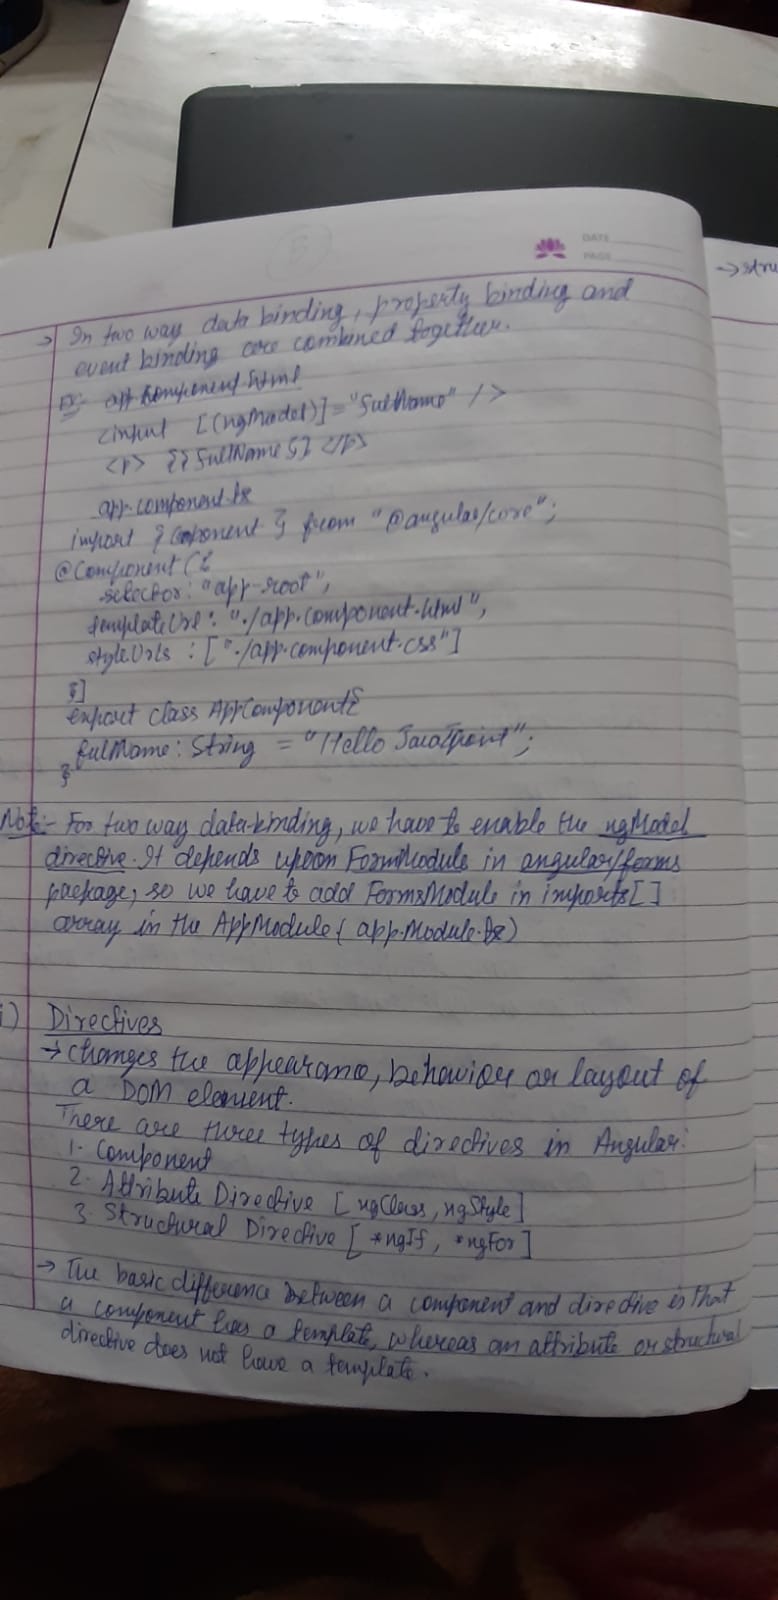 5
DATE
PAGE
→ stru
→ In two way data binding, property binding and
event binding are combined together.
Ex:- app.component.html
<input [(ngModel)]="fullName" />
<p> {{fullName}} </p>
app.component.ts
import { Component } from "@angular/core";
@Component({
selector: "app-root",
templateUrl: "./app.component.html",
styleUrls : ["./app.component.css"]
}]
export class AppComponent{
fullName: String = "Hello JavaTpoint";
}
Note:- For two way data-binding, we have to enable the ngModel
directive. It depends upoon FormModule in angular/forms
package, so we have to add FormsModule in imports[]
array in the AppModule( app.Module.ts)
i) Directives
→ changes the appearance, behaviour or layout of
a DOM element.
There are three types of directives in Angular:
1. Component
2. Attribute Directive [ngClass, ngStyle]
3. Structural Directive [*ngIf, *ngFor]
→ The basic difference between a component and directive is that
a component has a template, whereas an attribute or structural
directive does not have a template.